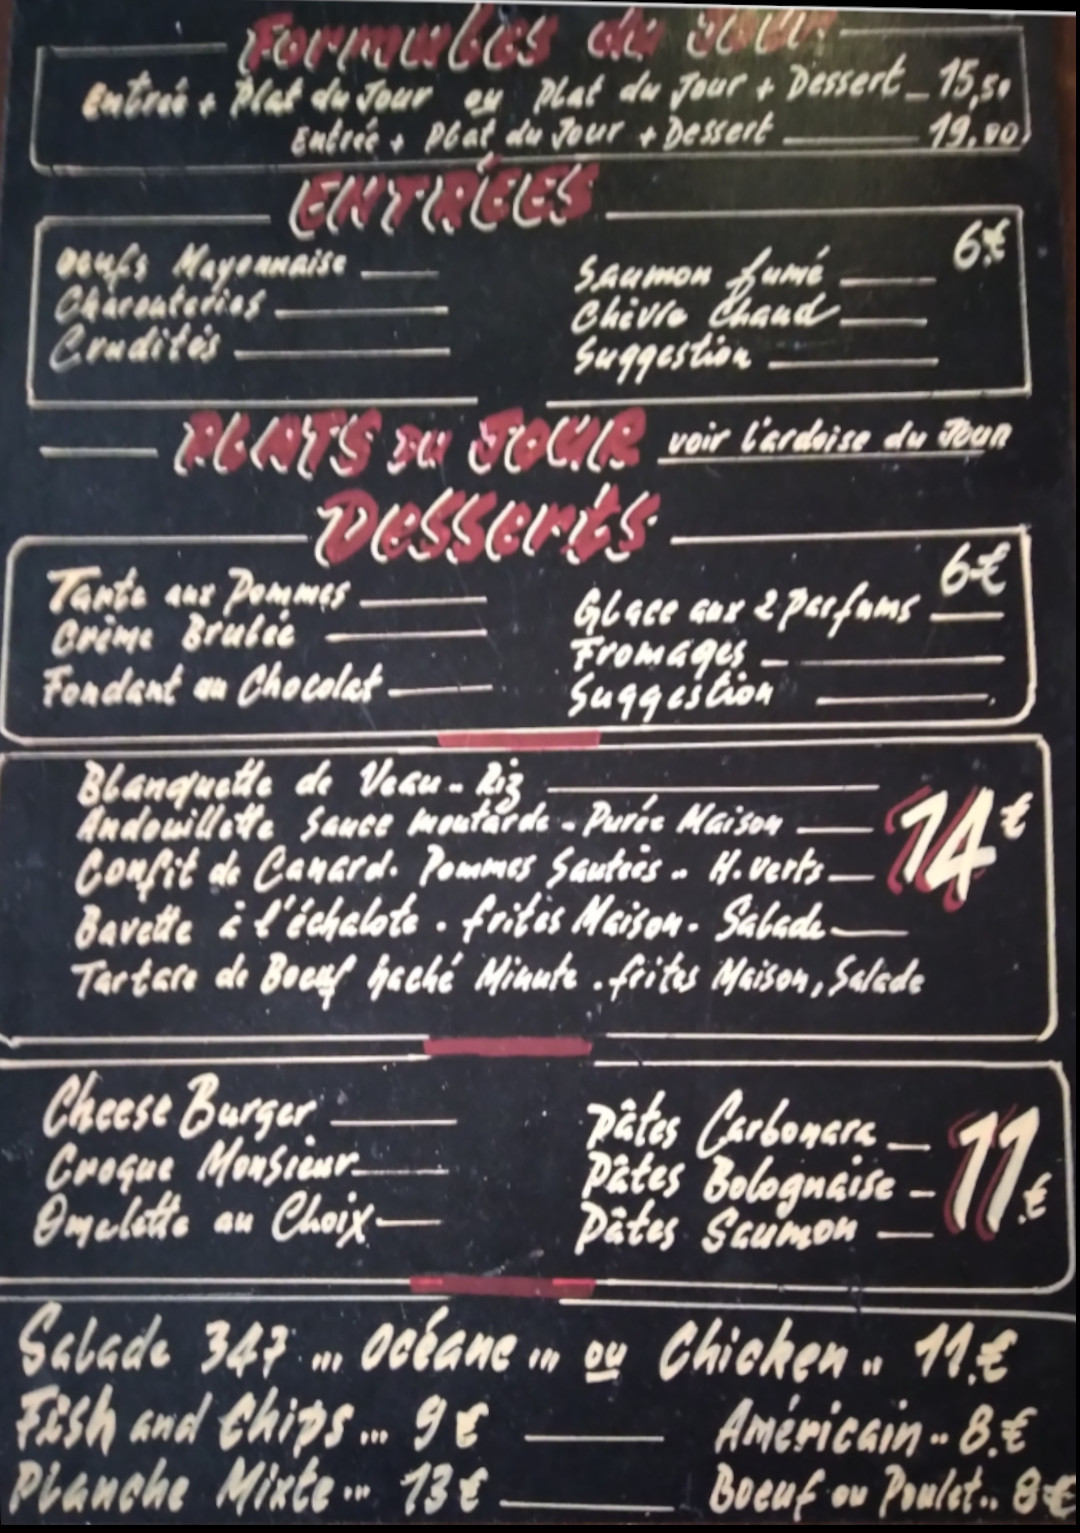 Formules du Jour
Entrée + Plat du Jour ou Plat du Jour + Dessert 15,50
Entrée + Plat du Jour + Dessert 19.00
ENTRÉES
6€
Oeufs Mayonnaise
Saumon fumé
Charcuteries
Chèvre Chaud
Crudités
Suggestion
PLATS DU JOUR voir l'ardoise du Jour
Desserts
6€
Tarte aux Pommes
Glace aux 2 Parfums
Crème Brulée
Fromages
Fondant au Chocolat
Suggestion
Blanquette de Veau - Riz
Andouillette Sauce moutarde - Purée Maison
14€
Confit de Canard. Pommes Sautées - H. verts
Bavette à l'échalote . frites Maison - Salade
Tartare de Boeuf haché Minute . frites Maison, Salade
Cheese Burger
Pâtes Carbonara
Croque Monsieur
Pâtes Bolognaise
11€
Omelette au Choix
Pâtes Saumon
Salade 347 ... Océane ... ou Chicken .. 11€
Fish and Chips ... 9€
Américain .. 8€
Planche Mixte ... 13€
Boeuf ou Poulet .. 8€